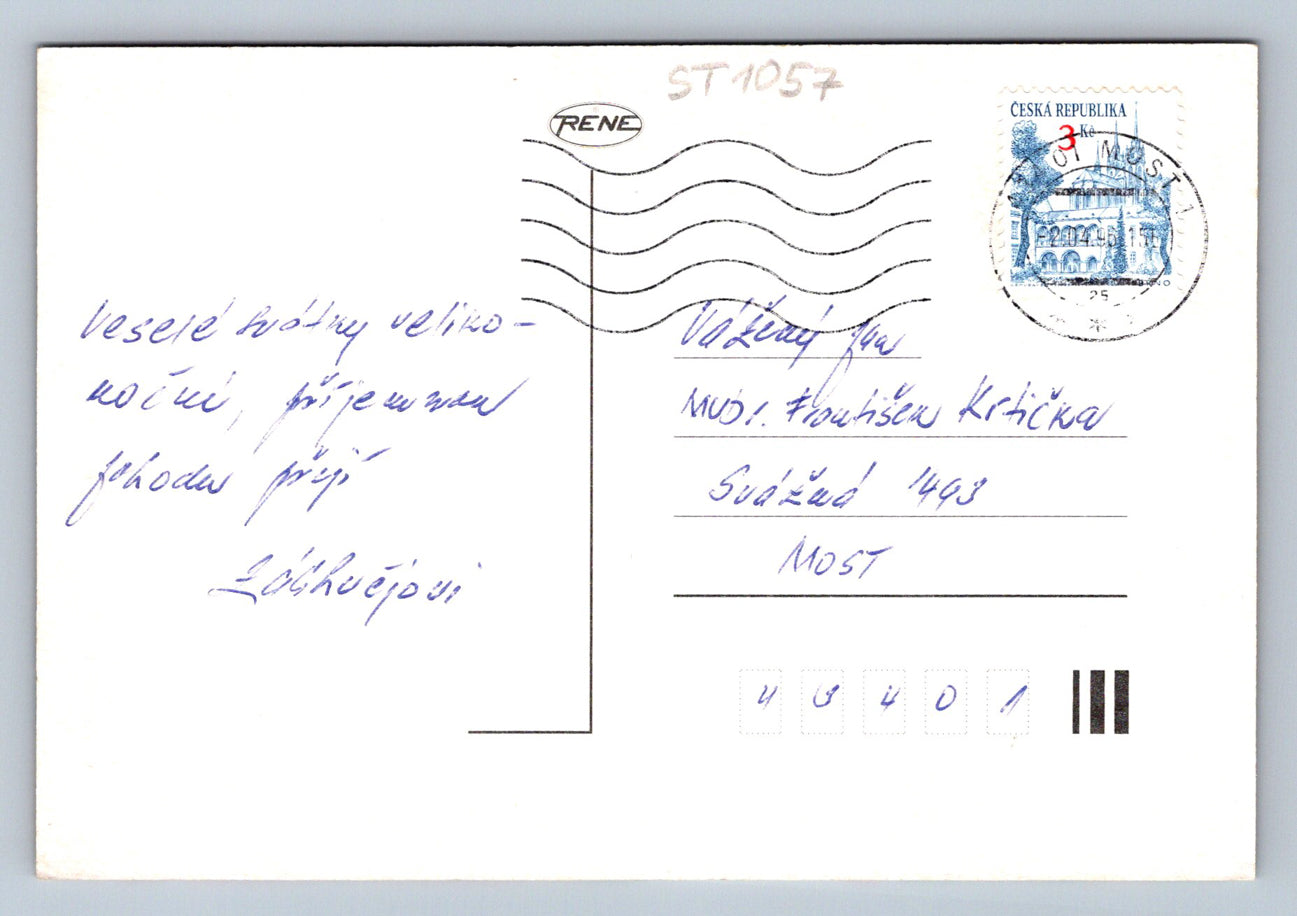 ST 1057
RENE
ČESKÁ REPUBLIKA
3 Kč
01 MOST 1
25
Veselé svátky veliko-
noční, příjemnou
pohodu přejí
Vážený pan
MUDr. František Krtička
Svážná 1493
MOST
43401